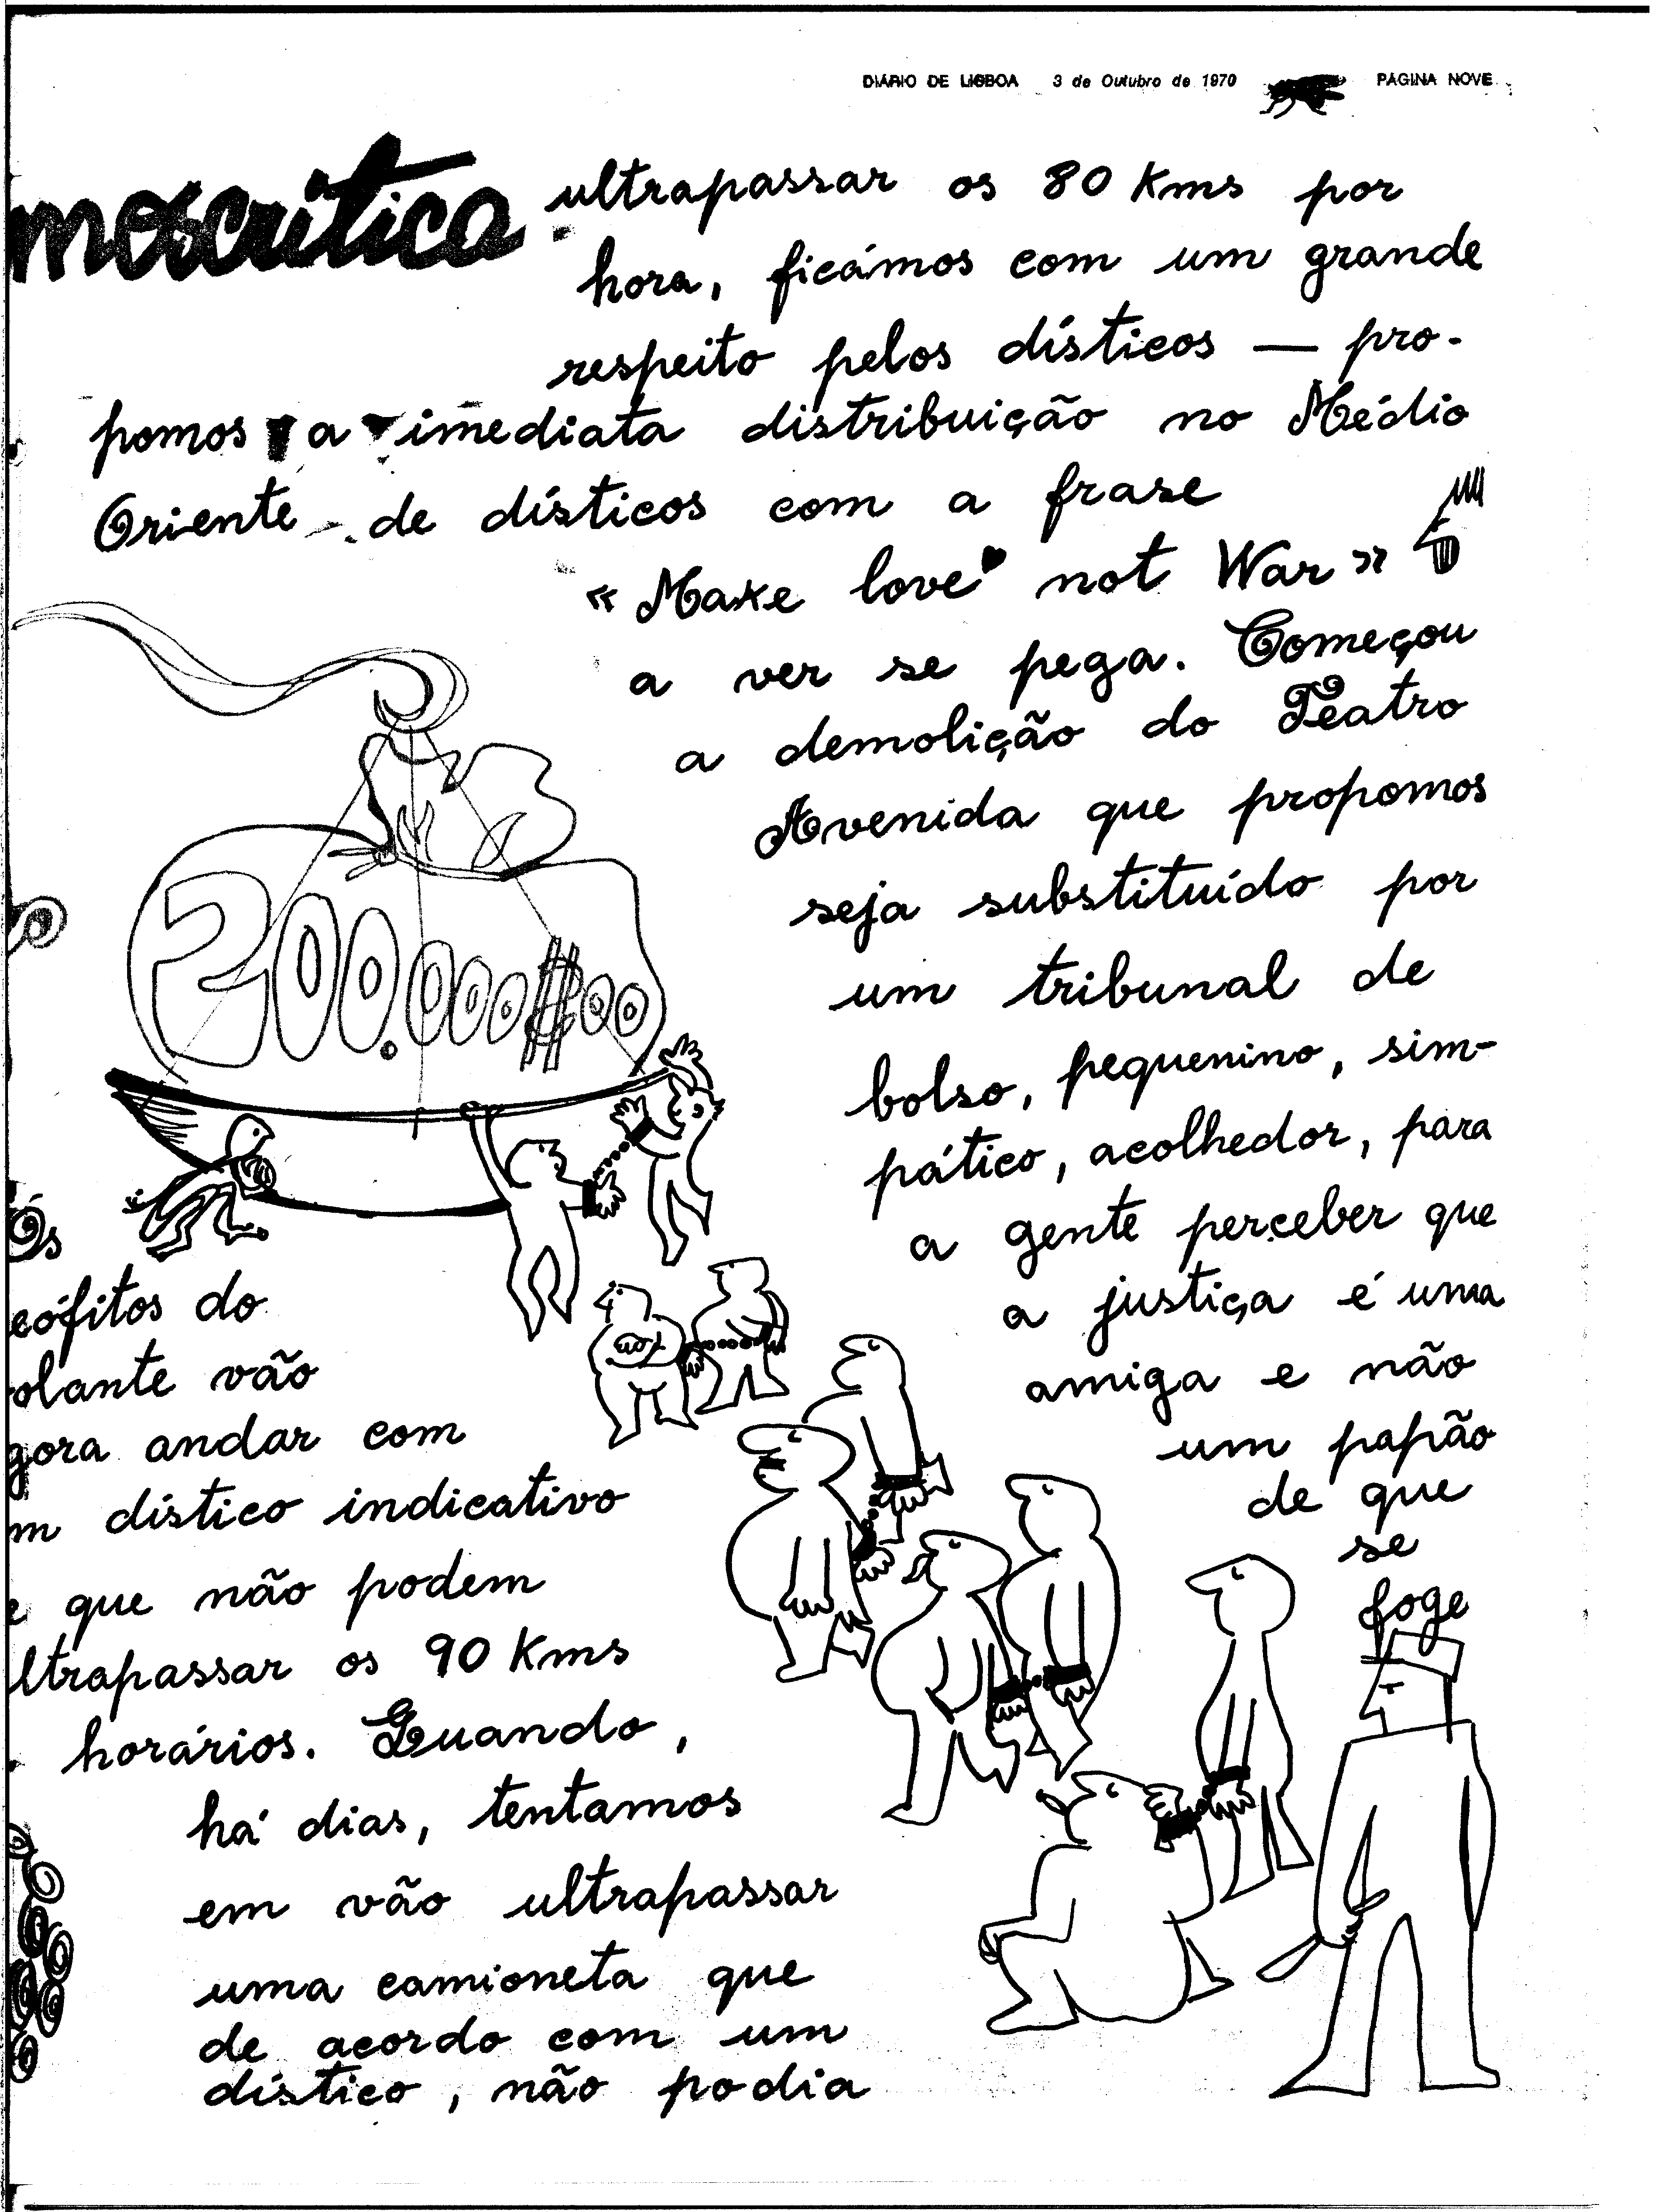 DIÁRIO DE LISBOA 3 de Outubro de 1970 PÁGINA NOVE
moscrítica
Os
eófitos do
olante vão
gora andar com
m dístico indicativo
e que não podem
ltrapassar os 90 Kms
horários. Quando,
há dias, tentamos
em vão ultrapassar
uma camioneta que
de acordo com um
dístico, não podia
ultrapassar os 80 Kms por
hora, ficámos com um grande
respeito pelos dísticos — pro-
pomos a imediata distribuição no Médio
Oriente de dísticos com a frase
«Make love not War»
a ver se pega. Começou
a demolição do Teatro
Avenida que propomos
seja substituído por
um tribunal de
bolso, pequenino, sim-
pático, acolhedor, para
a gente perceber que
a justiça é uma
amiga e não
um papão
de que
se
foge
200.000$00